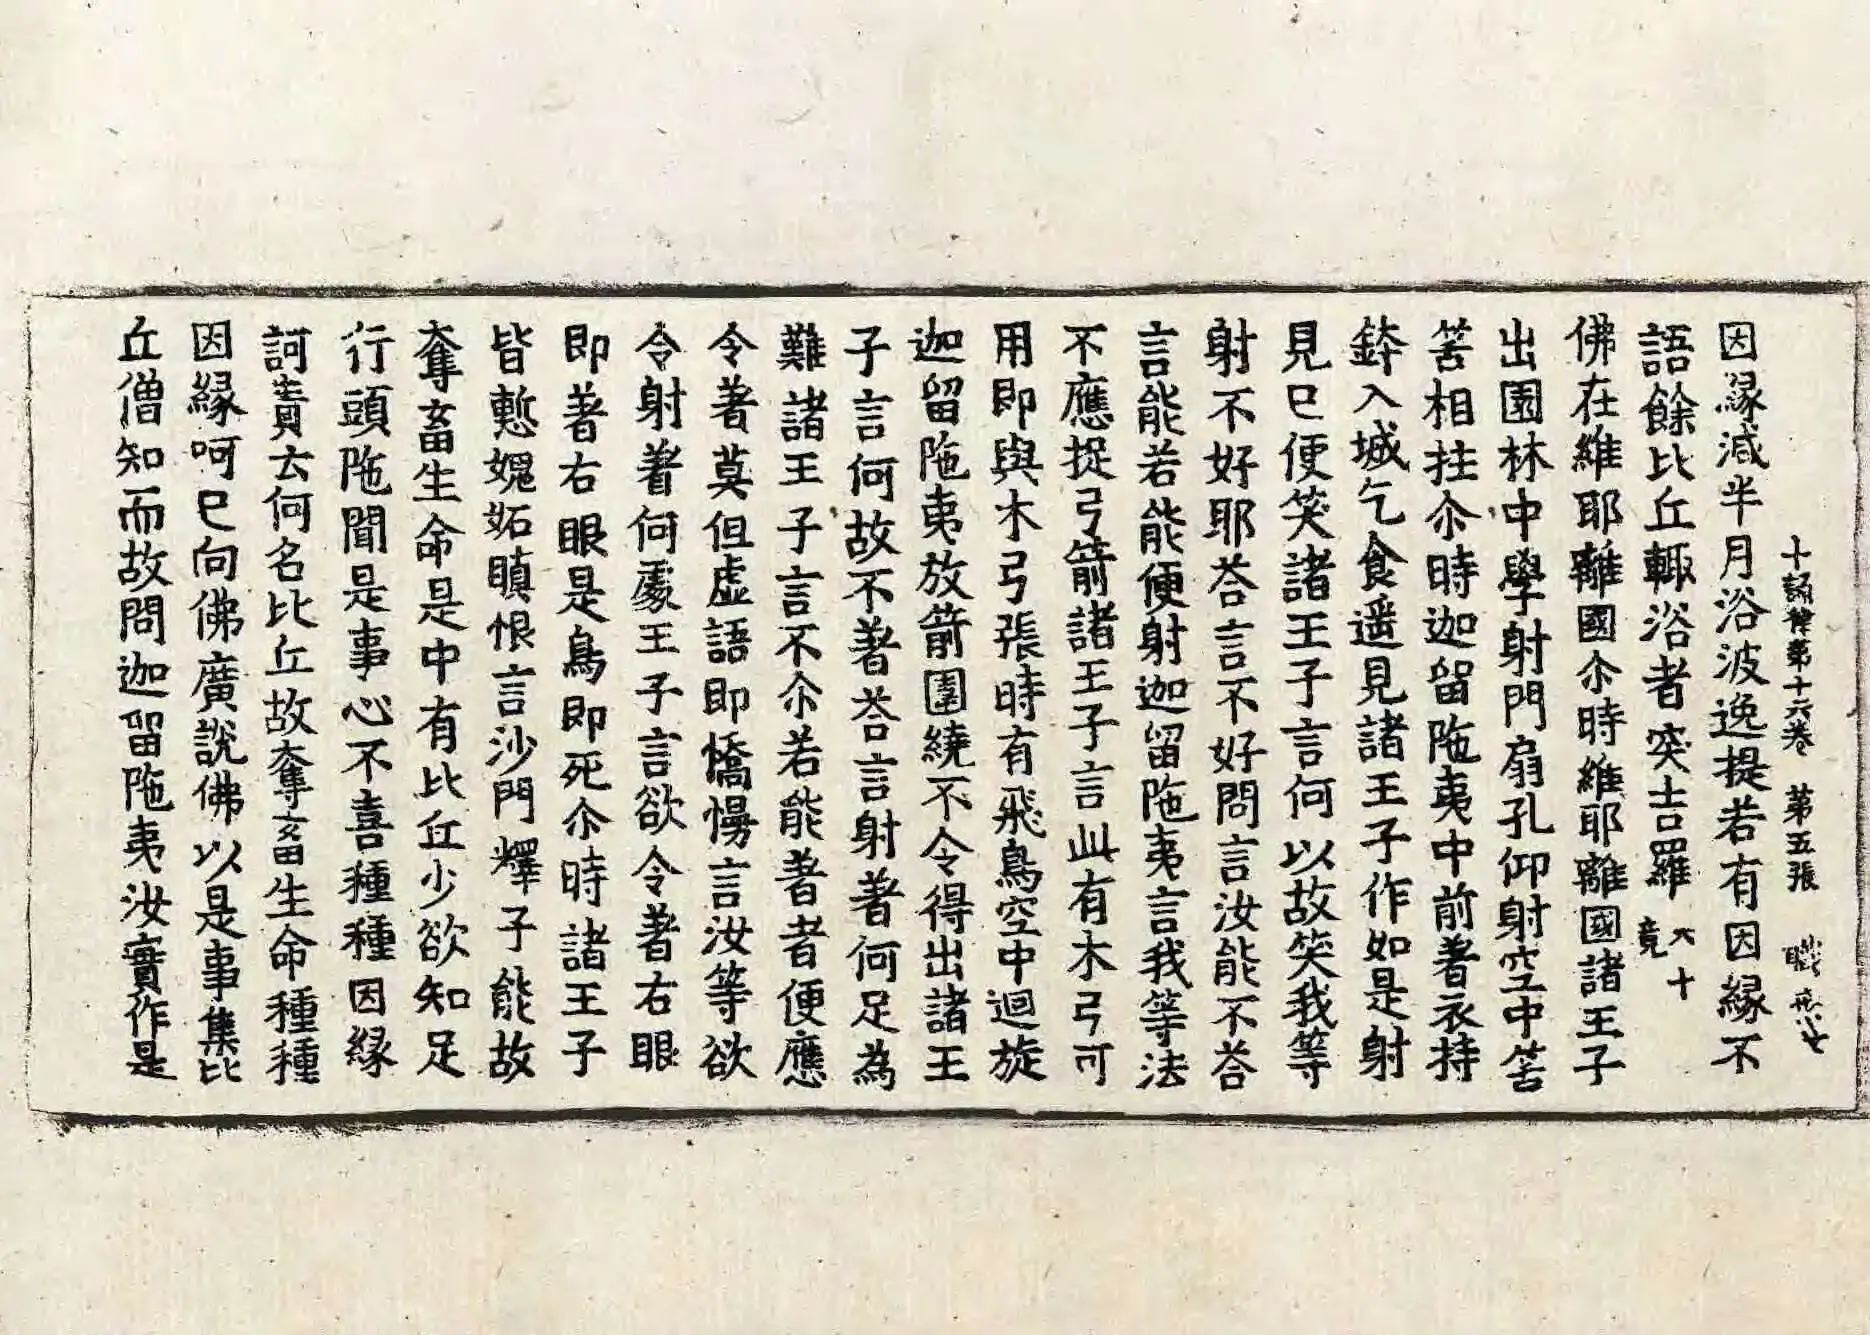 十誦律第十六卷　第五張　職
因緣減半月浴波逸提若有因緣不
語餘比丘輙浴者突吉羅六十竟
佛在維耶離國尒時維耶離國諸王子
出園林中學射門扇孔仰射空中筈
筈相拄尒時迦留陁夷中前著衣持
鉢入城乞食遥見諸王子作如是射
見已便笑諸王子言何以故笑我等
射不好耶荅言不好問言汝能不荅
言能若能便射迦留陁夷言我等法
不應捉弓箭諸王子言此有木弓可
用即與木弓張時有飛鳥空中迴旋
迦留陁夷放箭圍繞不令得出諸王
子言何故不著荅言射著何足為
難諸王子言不尒若能著者便應
令著莫但虛語即憍慢言汝等欲
令射著何處王子言欲令著右眼
即著右眼是鳥即死尒時諸王子
皆慙媿妬瞋恨言沙門釋子能故
奪畜生命是中有比丘少欲知足
行頭陁聞是事心不喜種種因緣
訶責云何名比丘故奪畜生命種種
因緣呵已向佛廣說佛以是事集比
丘僧知而故問迦留陁夷汝實作是